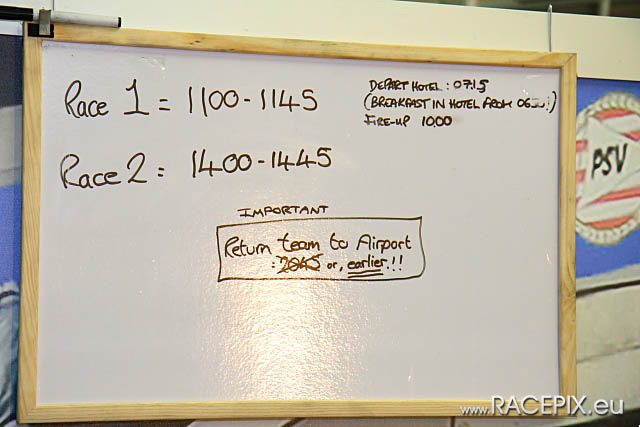 Race 1 = 1100 - 1145
Race 2 = 1400 - 1445
DEPART HOTEL : 07:15
(BREAKFAST IN HOTEL FROM
FIRE-UP 10.00
IMPORTANT
Return team to Airport
: 2045 or, earlier!!!
PSV
www.RACEPIX.eu